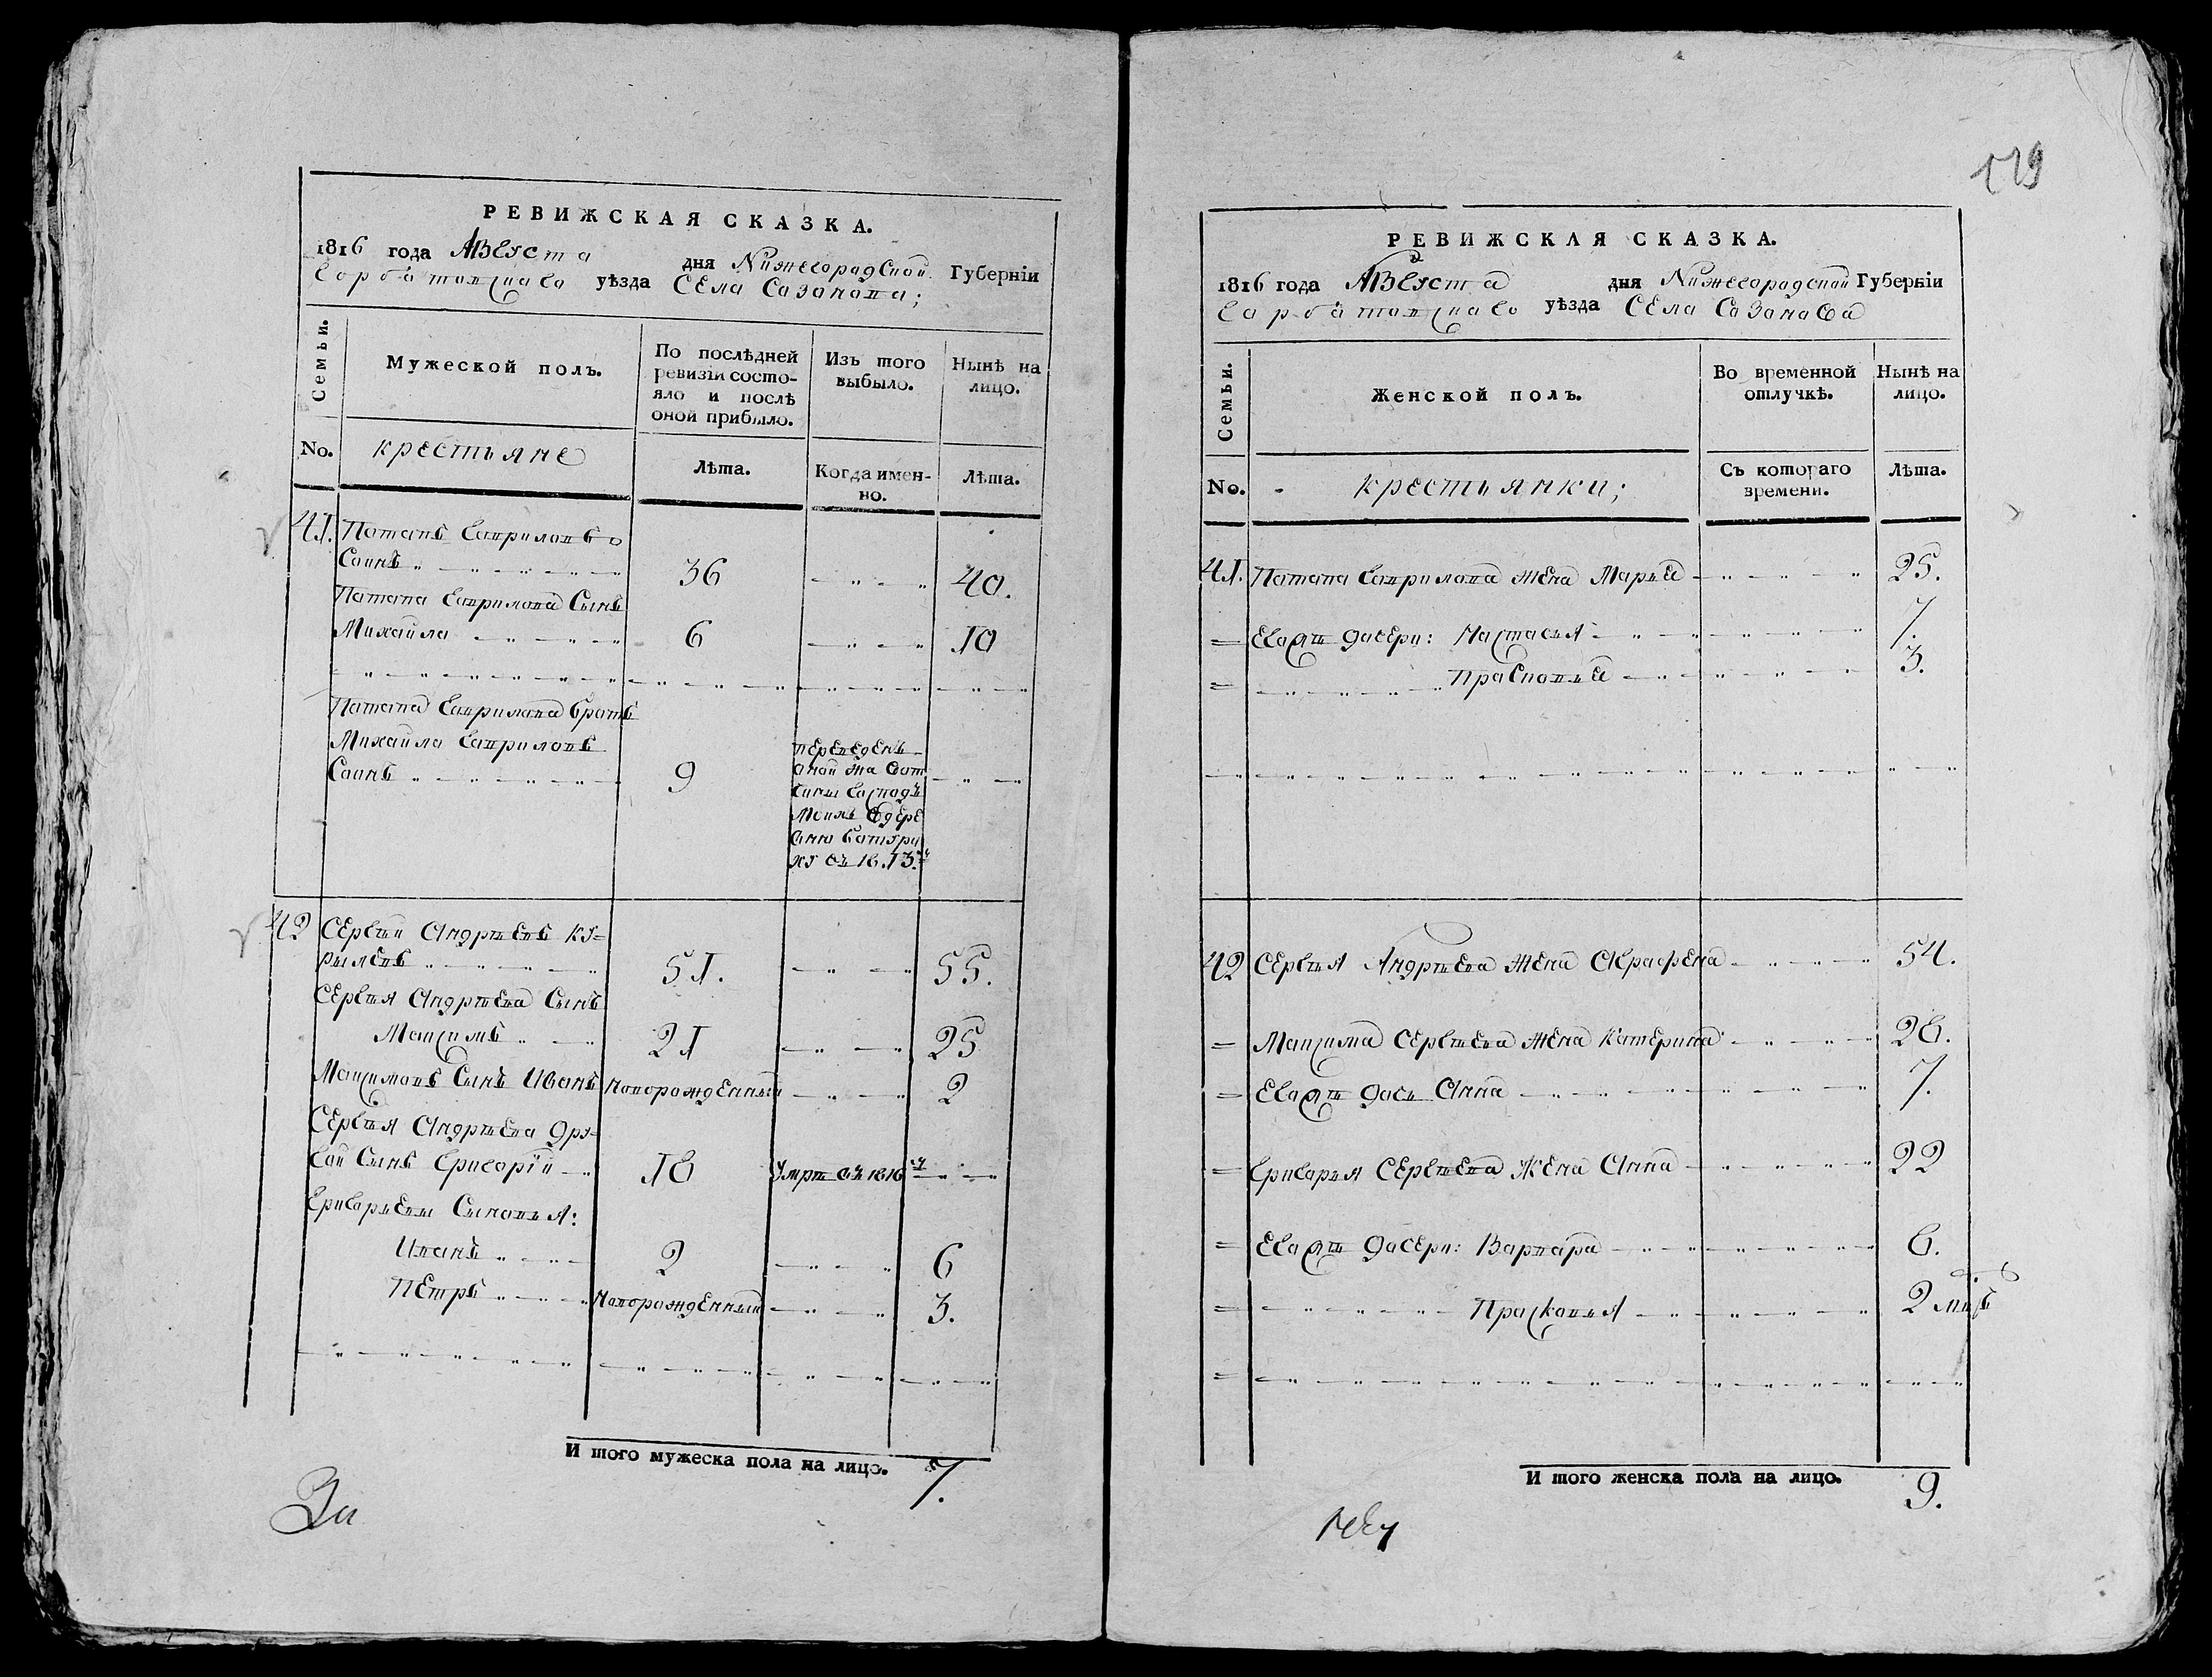 РЕВИЖСКАЯ СКАЗКА.
1816 года Августа дня Нижегородской Губерніи
Горбатовскаго уѣзда Села Сазанова;
Семьи.
Мужеской полъ.
По послѣдней ревизіи состояло и послѣ оной прибыло.
Изъ того выбыло.
Нынѣ на лицо.
No.
крестьяне
Лѣта.
Когда именно.
Лѣта.
41. Потапъ Гавриловъ
36 40.
Потапа Гаврилова Сынъ
Михайла 6 10
Потапа Гаврилова братъ
Михайла Гавриловъ
9
переведенъ
деревню
42 Сергѣй Андрѣевъ Ку=
рылевъ 51. 55.
Сергѣя Андрѣева Сынъ
Максимъ 21 25
Максимовъ Сынъ Иванъ новорожденный 2
Сергѣя Андрѣева дру=
гой Сынъ Григорій 18 Умре въ 1816
Григорьевы Сыновья:
Иванъ 2 6
Петръ новорожденный 3.
И того мужеска пола на лицо. 7.
За
179
РЕВИЖСКАЯ СКАЗКА.
1816 года Августа дня Нижегородской Губерніи
Горбатовскаго уѣзда Села Сазанова
Семьи.
Женской полъ.
Во временной отлучкѣ.
Нынѣ на лицо.
No.
крестьянки;
Съ котораго времени.
Лѣта.
41. Потапа Гаврилова жена Марья 25.
= Ево дочери: Настасья 7.
= Прасковья 3.
42 Сергѣя Андрѣева жена Аграфена 54.
= Максима Сергѣева жена Катерина 28.
= Ево дочь Анна 7.
= Григорья Сергѣева жена Анна 22
= Ево дочери: Варвара 8.
= Прасковья 2
И того женска пола на лицо. 9.